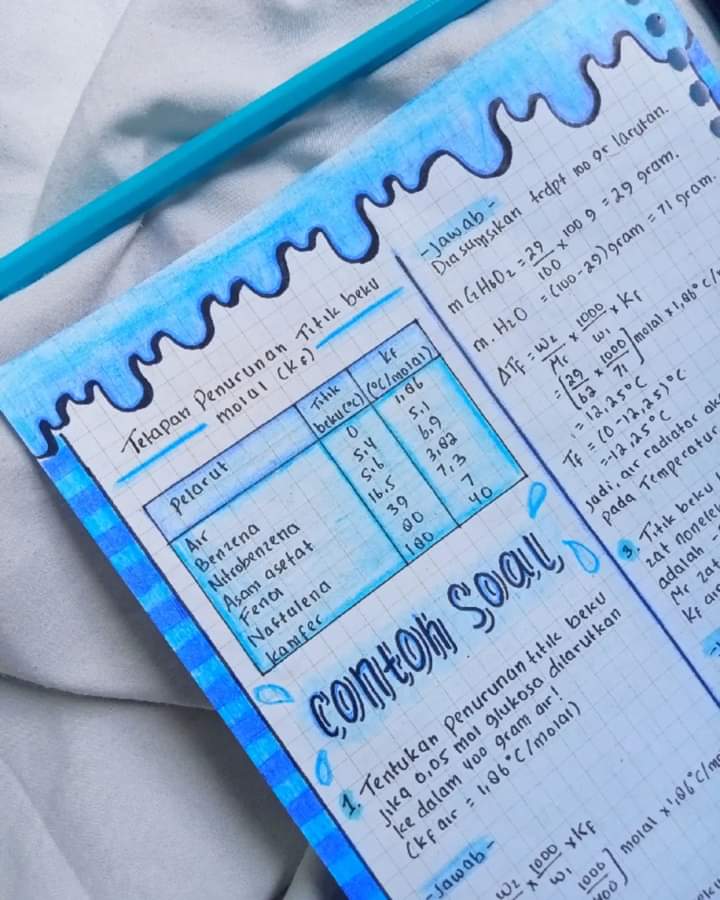 Tetapan Penurunan Titik beku
molal (kf)
Pelarut Titik beku(°C) kf (°C/molal)
Air 0 1,86
Benzena 5,4 5,1
Nitrobenzena 5,6 6,9
Asam asetat 16,5 3,82
Fenol 39 7,3
Naftalena 80 7
kamfer 180 40
contoh Soal
1. Tentukan Penurunan titik beku
jika 0,05 mol glukosa dilarutkan
ke dalam 400 gram air!
(kf air = 1,86°C/molal)
-Jawab-
w2 × 1000/w1 × kf
1000/400] molal × 1,86°C/mo
-Jawab-
Diasumsikan trdpt 100 gr larutan.
m C2H6O2 = 29/100 × 100 g = 29 gram.
m. H2O = (100-29) gram = 71 gram.
ΔTf = w2/Mr × 1000/w1 × kf
= [29/62 × 1000/71] molal × 1,86°C/m
= 12,25°C
Tf = (0-12,25)°C
= -12,25°C
Jadi, air radiator ak
pada Temperatur
3. Titik beku
zat nonele
adalah -
Mr zat
kf air